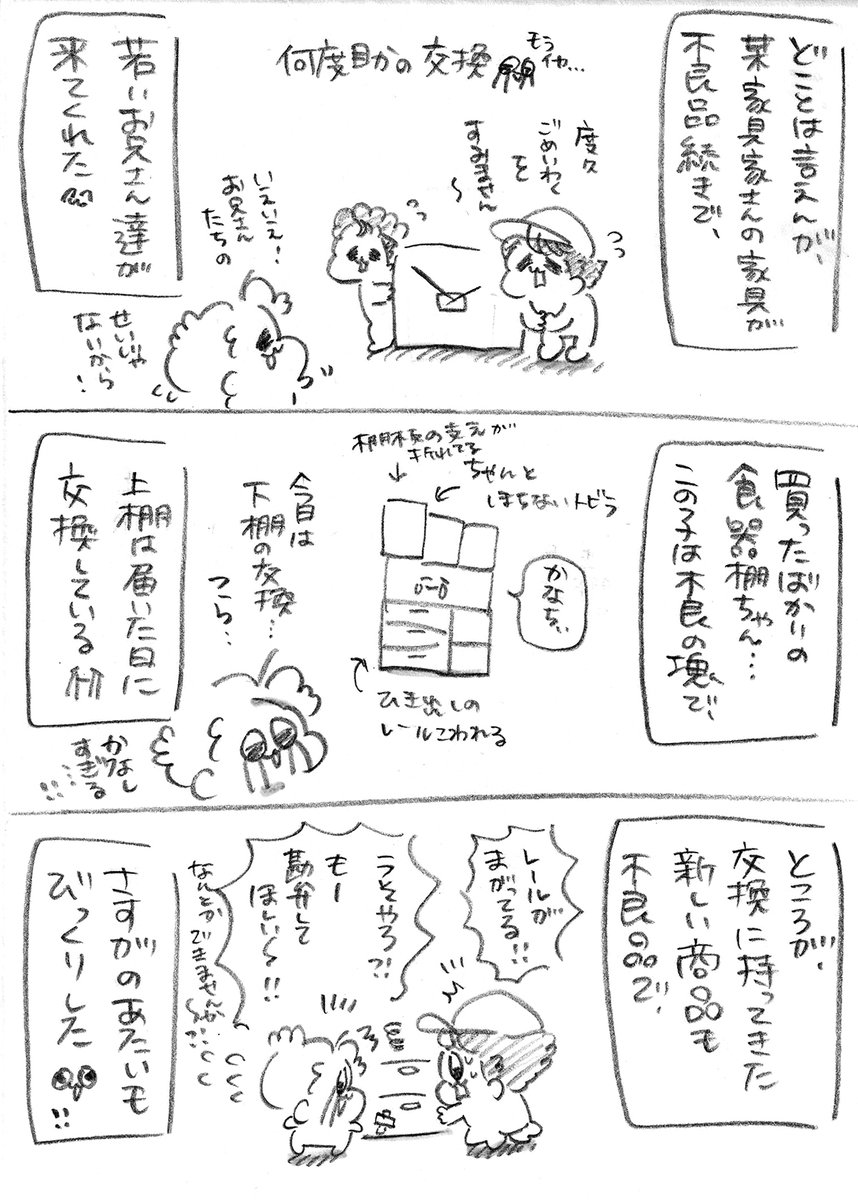 どことは言えんが、
某家具家さんの家具が
不良品続きで、
何度目かの交換
もう
イヤ…
度々
ごめいわく
を
すみません
〜
いえいえ!
お兄さん
たちの
せいじゃ
ないから
!
若いお兄さん達が
来てくれた
買ったばかりの
食器棚ちゃん…
この子は不良の塊で、
棚板の支えが
折れてる
ちゃんと
しまらないトビラ
かなち、
ひき出しの
レールこわれる
今日は
下棚の交換…
つら…
かなし
すぎる
…!!
上棚は届いた日に
交換している
ところが、
交換に持ってきた
新しい商品も
不良品で、
レールが
まがってる!!
うそやろ?!
もー
勘弁して
ほしい〜!!
なんとかできませんか
〜?…
さすがのあたいも
びっくりした
!!